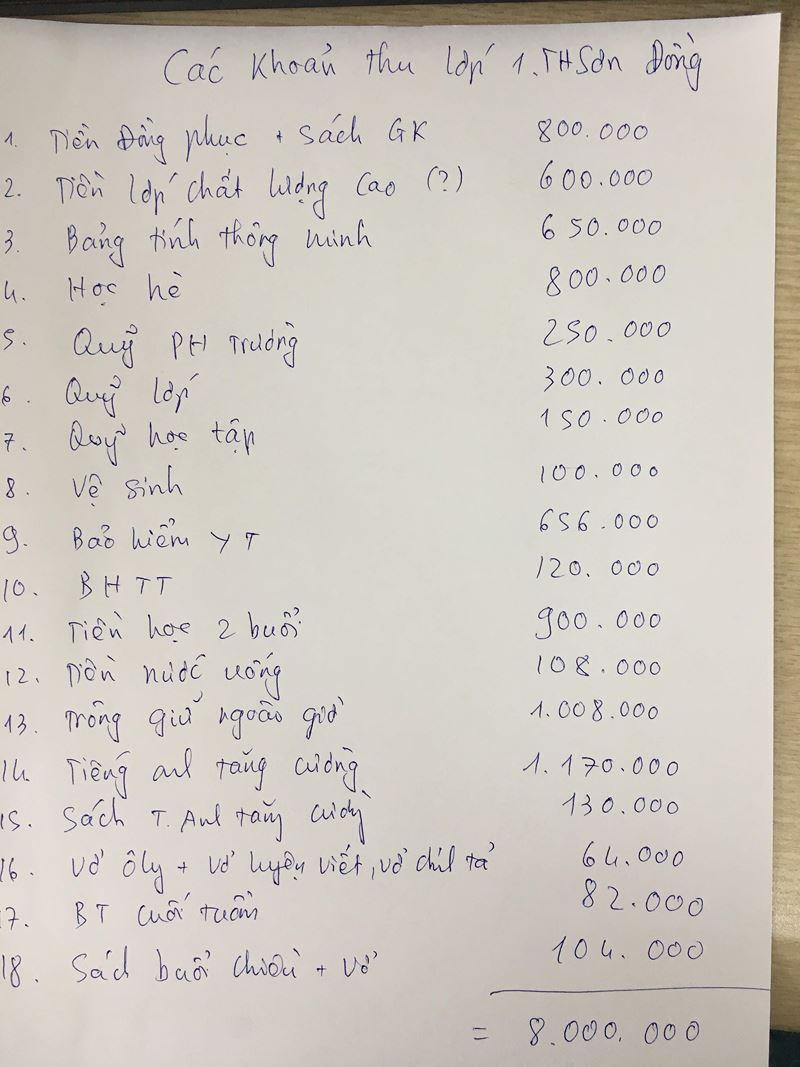 Các Khoản thu lớp 1. TH Sơn Đồng
1. Tiền Đồng phục + Sách GK 800.000
2. Tiền lớp chất lượng cao (?) 600.000
3. Bảng tính thông minh 650.000
4. Học hè 800.000
5. Quỹ PH Trường 250.000
6. Quỹ lớp 300.000
7. Quỹ học tập 150.000
8. Vệ sinh 100.000
9. Bảo hiểm YT 656.000
10. BHTT 120.000
11. Tiền học 2 buổi 900.000
12. Tiền nước uống 108.000
13. Trông giữ ngoài giờ 1.008.000
14. Tiếng anh tăng cường 1.170.000
15. Sách T. Anh tăng cường 130.000
16. Vở ôly + Vở luyện viết, vở chính tả 64.000
17. BT cuối tuần 82.000
18. Sách buổi chiều + Vở 104.000
= 8.000.000